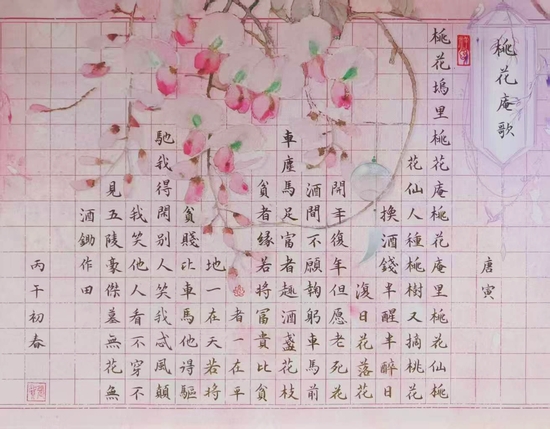 桃花庵歌
唐寅
桃花塢里桃花庵桃花庵里桃花仙桃
花仙人種桃樹又摘桃花
換酒錢半醒半醉日
復日花落花
開年復年但愿老死花
酒間不願鞠躬車馬前
車塵馬足富者趣酒盞花枝
貧者緣若將富貴比貧
者一在平
地一在天若將
貧賤比車馬他得驅
馳我得閑别人笑我忒風顛
我笑他人看不穿不
見五陵豪傑墓無花無
酒鋤作田
丙午初春